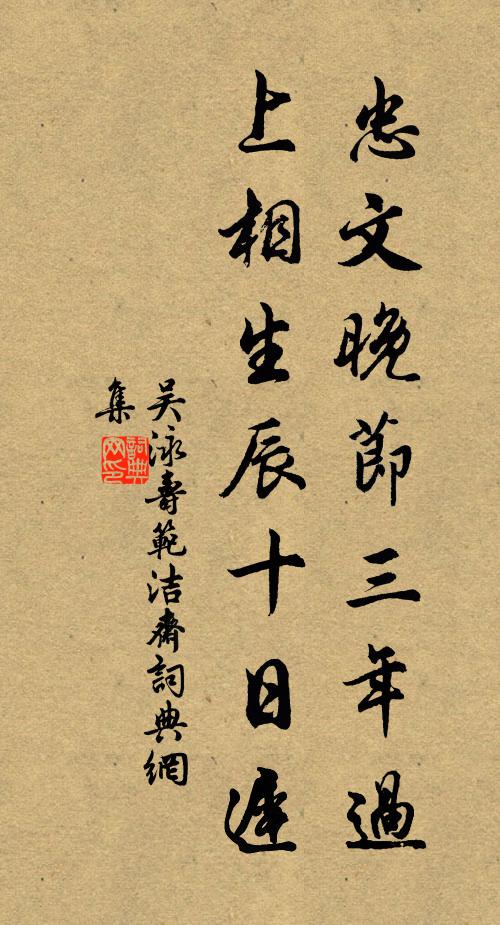 忠文晚節三年過
上相生辰十日遲
吴泳壽範洁齋詞典網
集
詞典網印